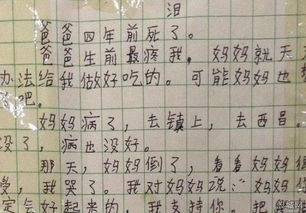 泪
爸爸四年前死了。
爸爸生前最疼我,妈妈就天
办法给我做好吃的。可能妈妈也
吧。
妈妈病了,去镇上,去西昌
没了,病也没好。
那天,妈妈倒了,看看妈妈很
,我哭了。我对妈妈说:“妈妈
定气好起来的,我支持你,把